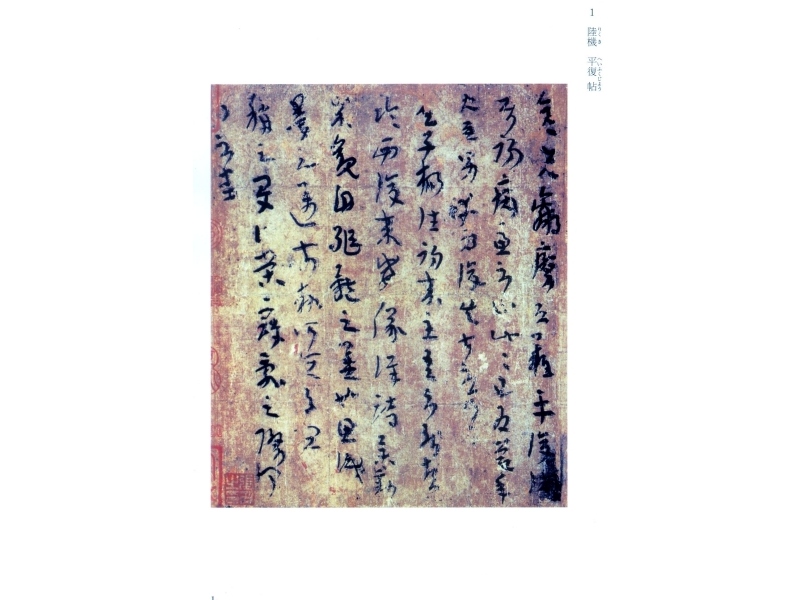 1
陸機 平復帖
りくき へいふくじょう
彦先羸瘵恐難平復
初病慮不止此此已為慶承
使唯男幸為復失前憂耳
子楊往初來主吾不能盡
臨西復來威儀詳跱舉動成
觀自軀體之美也思識
之邁前執所恆有宜
稱之夏伯榮寇亂之際聞
問不悉